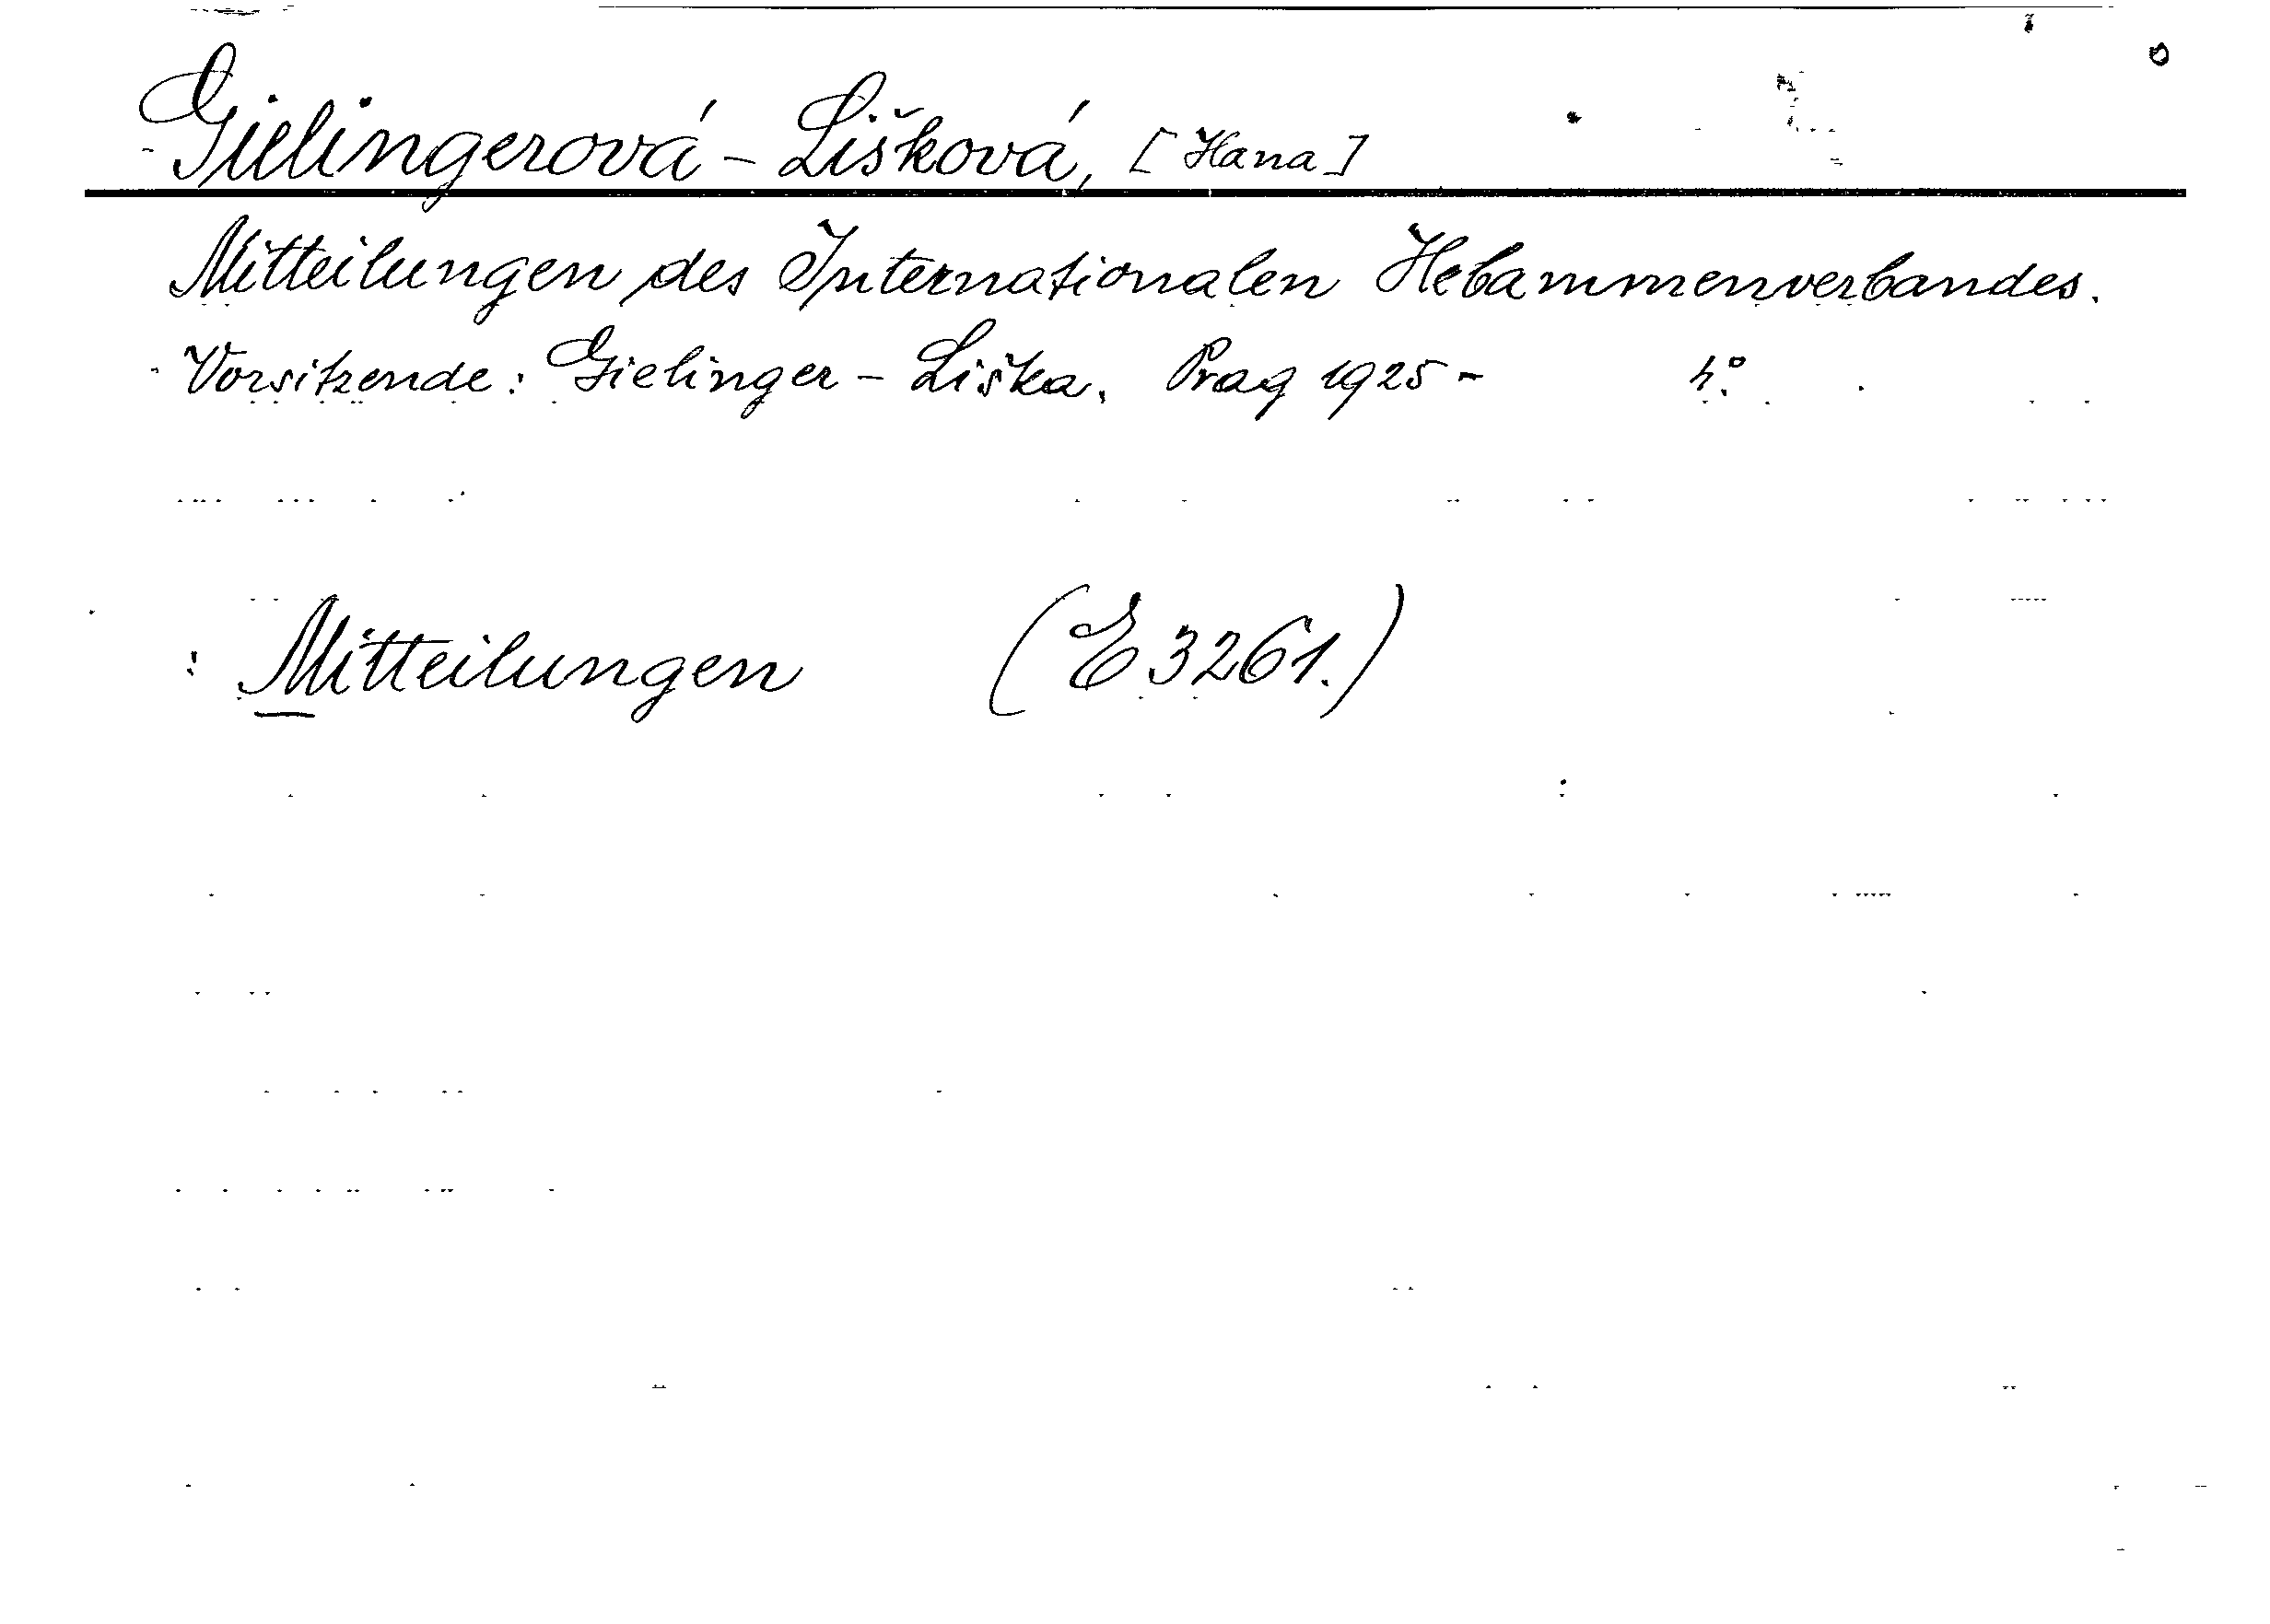 Gielingerová - Lišková, [Hana]
Mitteilungen des Internationalen Hebammenverbandes.
Vorsitzende: Gielinger - Liška. Prag 1925 - 4°.
Mitteilungen (E 3261.)